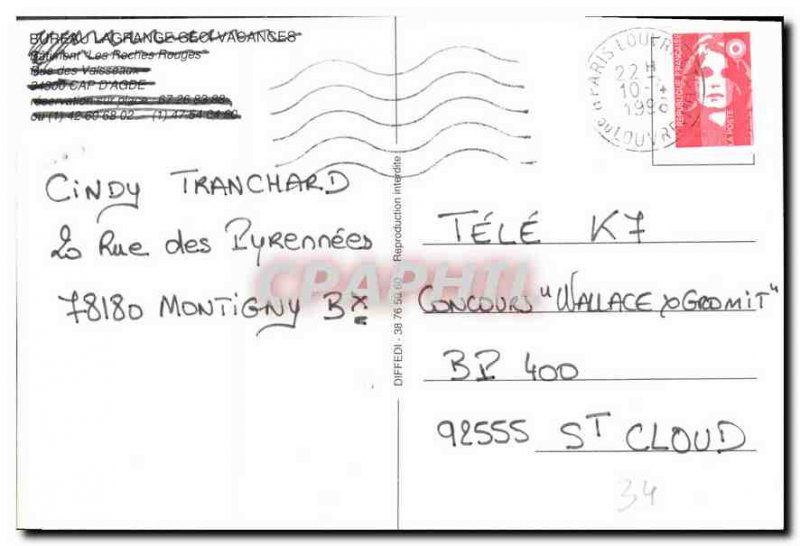 BUREAU LAGRANGE GEO VACANCES
Bâtiment "Les Roches Rouges"
Rue des Vaisseaux
34300 CAP D'AGDE
réservation sur place 67 26 83 88
ou (1) 42 60 68 02 (1) 47 54 04 80
CINDY TRANCHARD
20 Rue des Pyrennées
78180 MONTIGNY BX
DIFFEDI - 38 76 50 60 - Reproduction interdite
PARIS LOUVRE
22 H
10 - 4
199
LOUVRE
REPUBLIQUE FRANÇAISE
LA POSTE
TÉLÉ K7
CONCOURS "WALLACE & GROMIT"
BP 400
92555 ST CLOUD
34
CPAPHIL